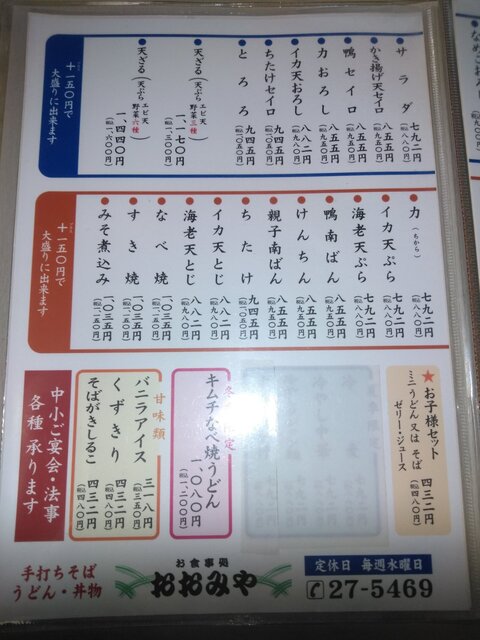 サラダ 七九二円
(税込八八〇円)
かき揚げ天セイロ 八五五円
(税込九五〇円)
鴨セイロ 八五五円
(税込九五〇円)
力おろし 八五五円
(税込九五〇円)
イカ天おろし 八八二円
(税込九八〇円)
ちたけセイロ 九四五円
とろろ 九四五円
天ざる(天ぷら エビ天 野菜三種) 一、一七〇円
(税込一、三〇〇円)
天ざる(天ぷら エビ天 野菜六種) 一、四四〇円
(税込一、六〇〇円)
+一五〇円で
大盛りに出来ます
力(ちから) 七九二円
(税込八八〇円)
イカ天ぷら 七九二円
(税込八八〇円)
海老天ぷら 七九二円
(税込八八〇円)
鴨南ばん 八五五円
(税込九五〇円)
けんちん 八五五円
(税込九五〇円)
親子南ばん 八五五円
(税込九五〇円)
ちたけ 九四五円
イカ天とじ 八八二円
(税込九八〇円)
海老天とじ 八八二円
(税込九八〇円)
なべ焼 一、〇三五円
(税込一、一五〇円)
すき焼 一、〇三五円
(税込一、一五〇円)
みそ煮込み 一、〇三五円
(税込一、一五〇円)
+一五〇円で
大盛りに出来ます
★お子様セット 四三二円
ミニうどん又はそば
ゼリー・ジュース
(税込四八〇円)
キムチなべ焼うどん
一、〇八〇円
(税込一、二〇〇円)
甘味類
バニラアイス 三一八円
(税込三五〇円)
くずきり 四三二円
(税込四八〇円)
そばがきしるこ 四三二円
(税込四八〇円)
中小ご宴会・法事
各種承ります
手打ちそば
うどん・丼物
お食事処
おおみや
定休日 毎週水曜日
27-5469